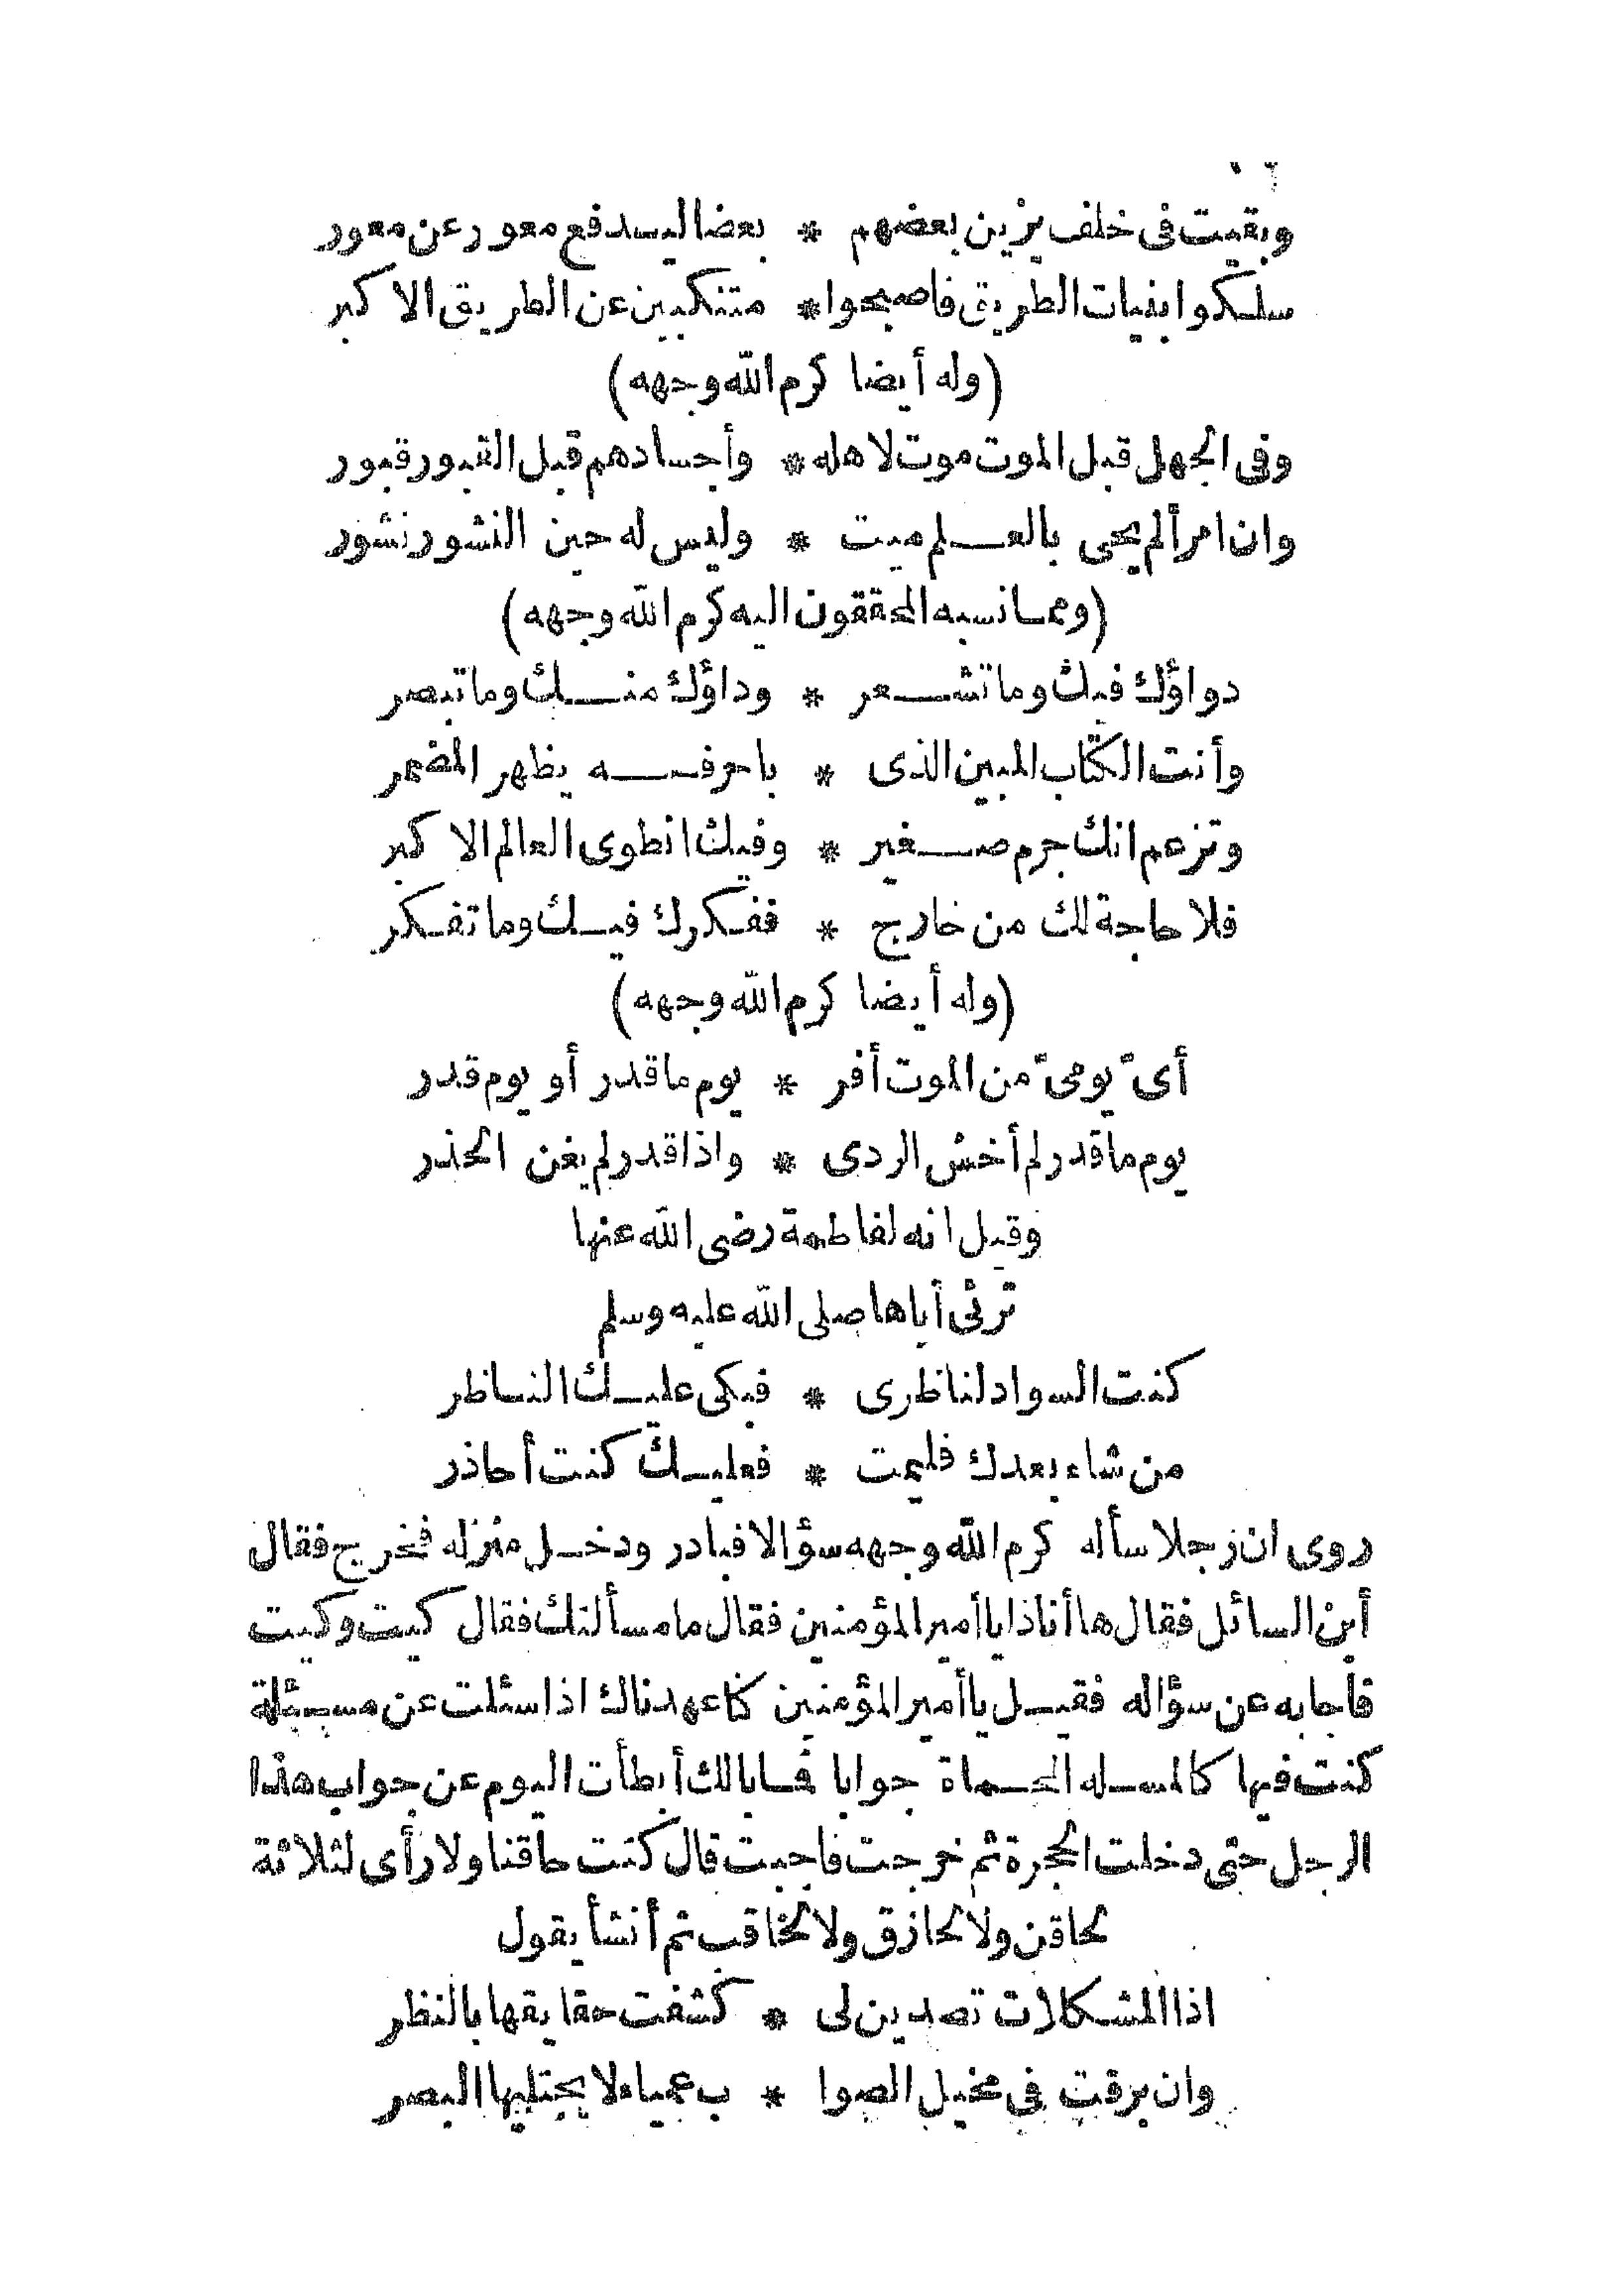 وبقيت فى خلف يزين بعضهم * بعضا ليدفع معور عن معور
سلكوا بنيات الطريق فاصبحوا * متنكبين عن الطريق الاكبر
(وله أيضا كرم الله وجهه)
وفى الجهل قبل الموت موت لاهله * وأجسادهم قبل القبور قبور
وان امرألم يحى بالعلم ميت * وليس له حين النشور نشور
(ومما نسبه المحققون اليه كرم الله وجهه)
دواؤك فيك وما تشعر * وداؤك منك وما تبصر
وأنت الكتاب المبين الذى * باحرفه يظهر المضمر
وتزعم انك جرم صغير * وفيك انطوى العالم الاكبر
فلا حاجة لك من خارج * ففكرك فيك وما تفكر
(وله أيضا كرم الله وجهه)
أىّ يومىّ من الموت أفر * يوم ما قدر أو يوم قدر
يوم ما قدر لم أخش الردى * واذا قدر لم يغن الحذر
وقيل انه لفاطمة رضى الله عنها
ترثى أباها صلى الله عليه وسلم
كنت السواد لناظرى * فبكى عليك الناظر
من شاء بعدك فليمت * فعليك كنت أحاذر
روى ان رجلا سأله كرم الله وجهه سؤالا فبادر ودخل منزله فخرج فقال
أين السائل فقال ها أناذا ياأمير المؤمنين فقال ما مسألتك فقال كيت وكيت
فأجابه عن سؤاله فقيل ياأمير المؤمنين كنا عهدناك اذا سئلت عن مسيئلة
كنت فيها كالمسله المحماة جوابا فمابالك أبطأت اليوم عن جواب هذا
الرجل حتى دخلت الحجرة ثم خرجت فاجبت قال كنت حاقنا ولا رأى لثلاثة
لحاقن ولا لحازق ولا لحاقب ثم أنشأ يقول
اذا المشكلات تصدين لى * كشفت حقايقها بالنظر
وان برقت فى مخيل الصوا * ب عمياء لا يجتليها البصر